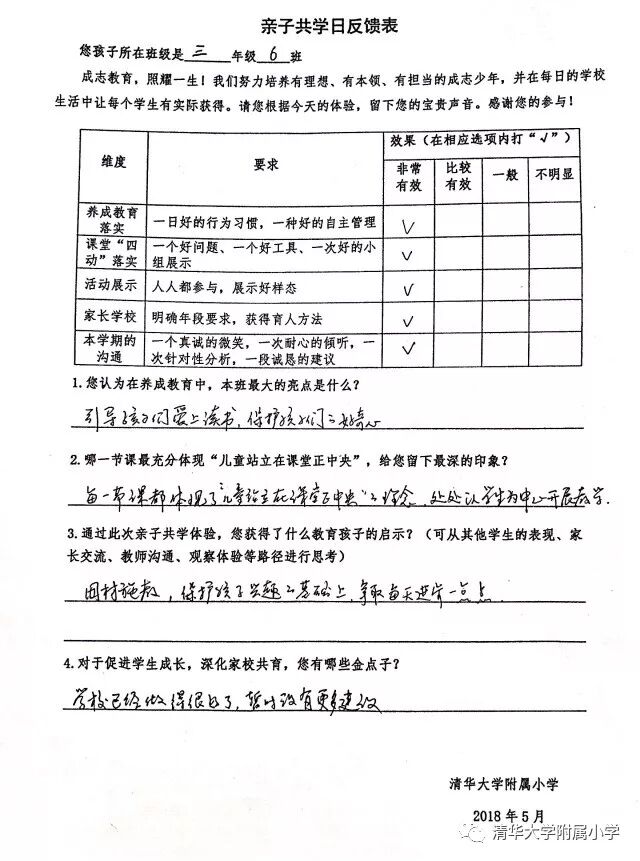 亲子共学日反馈表
您孩子所在班级是 三 年级 6 班
成志教育，照耀一生！我们努力培养有理想、有本领、有担当的成志少年，并在每日的学校
生活中让每个学生有实际获得。请您根据今天的体验，留下您的宝贵声音。感谢您的参与！
维度 要求 效果（在相应选项内打“√”）
非常有效 比较有效 一般 不明显
养成教育落实 一日好的行为习惯，一种好的自主管理 √
课堂“四动”落实 一个好问题、一个好工具、一次好的小组展示 √
活动展示 人人都参与，展示好样态 √
家长学校 明确年段要求，获得育人方法 √
本学期的沟通 一个真诚的微笑，一次耐心的倾听，一次针对性分析，一段诚恳的建议 √
1.您认为在养成教育中，本班最大的亮点是什么？
引导孩子们爱上读书，保护孩子们的好奇心
2.哪一节课最充分体现“儿童站立在课堂正中央”，给您留下最深的印象？
每一节课都体现了“儿童站立在课堂正中央”的理念，处处以学生为中心开展教学.
3.通过此次亲子共学体验，您获得了什么教育孩子的启示？（可从其他学生的表现、家
长交流、教师沟通、观察体验等路径进行思考）
因材施教，保护孩子兴趣的基础上，争取每天进步一点点.
4.对于促进学生成长，深化家校共育，您有哪些金点子？
学校已经做得很好了，暂时没有更多建议
清华大学附属小学
2018 年 5 月
清华大学附属小学